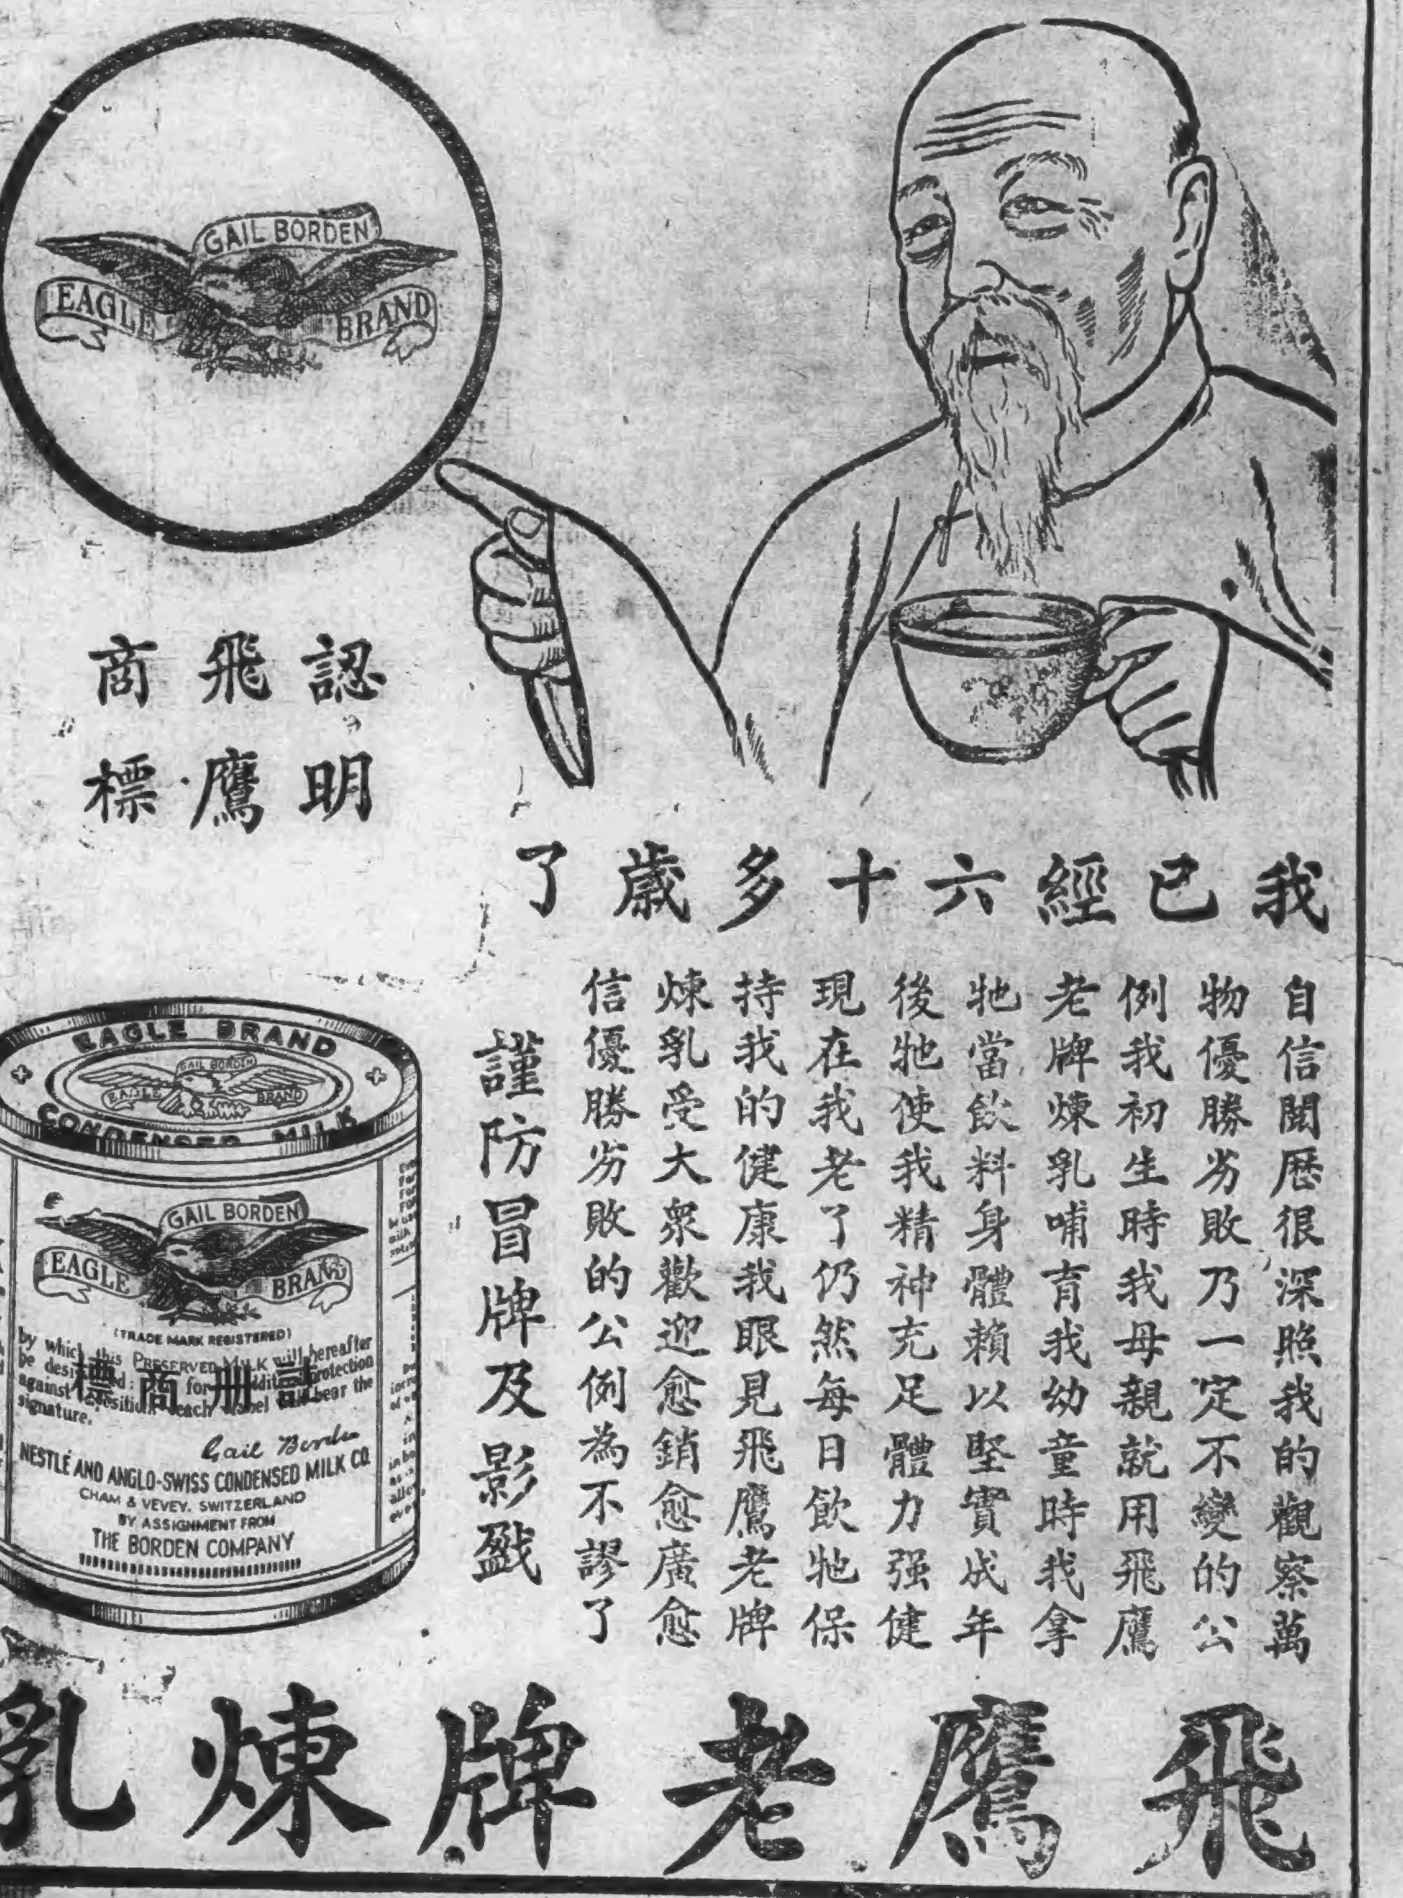 GAIL BORDEN
EAGLE BRAND
認明
飛鷹
商標
我已經六十多歲了
自信閱歷很深照我的觀察萬
物優勝劣敗乃一定不變的公
例我初生時我母親就用飛鷹
老牌煉乳哺育我幼童時我拿
牠當飲料身體賴以堅實成年
後牠使我精神充足體力强健
現在我老了仍然每日飲牠保
持我的健康我眼見飛鷹老牌
煉乳受大衆歡迎愈銷愈廣愈
信優勝劣敗的公例為不謬了
謹防冒牌及影戤
EAGLE BRAND
GAIL BORDEN
EAGLE BRAND
CONDENSED MILK
GAIL BORDEN
EAGLE BRAND
(TRADE MARK REGISTERED)
by which this PRESERVED MILK will hereafter
be for protection
against each label bear the
signature.
註冊商標
Gail Borden
NESTLÉ AND ANGLO-SWISS CONDENSED MILK CO.
CHAM & VEVEY, SWITZERLAND
BY ASSIGNMENT FROM
THE BORDEN COMPANY
飛鷹老牌煉乳